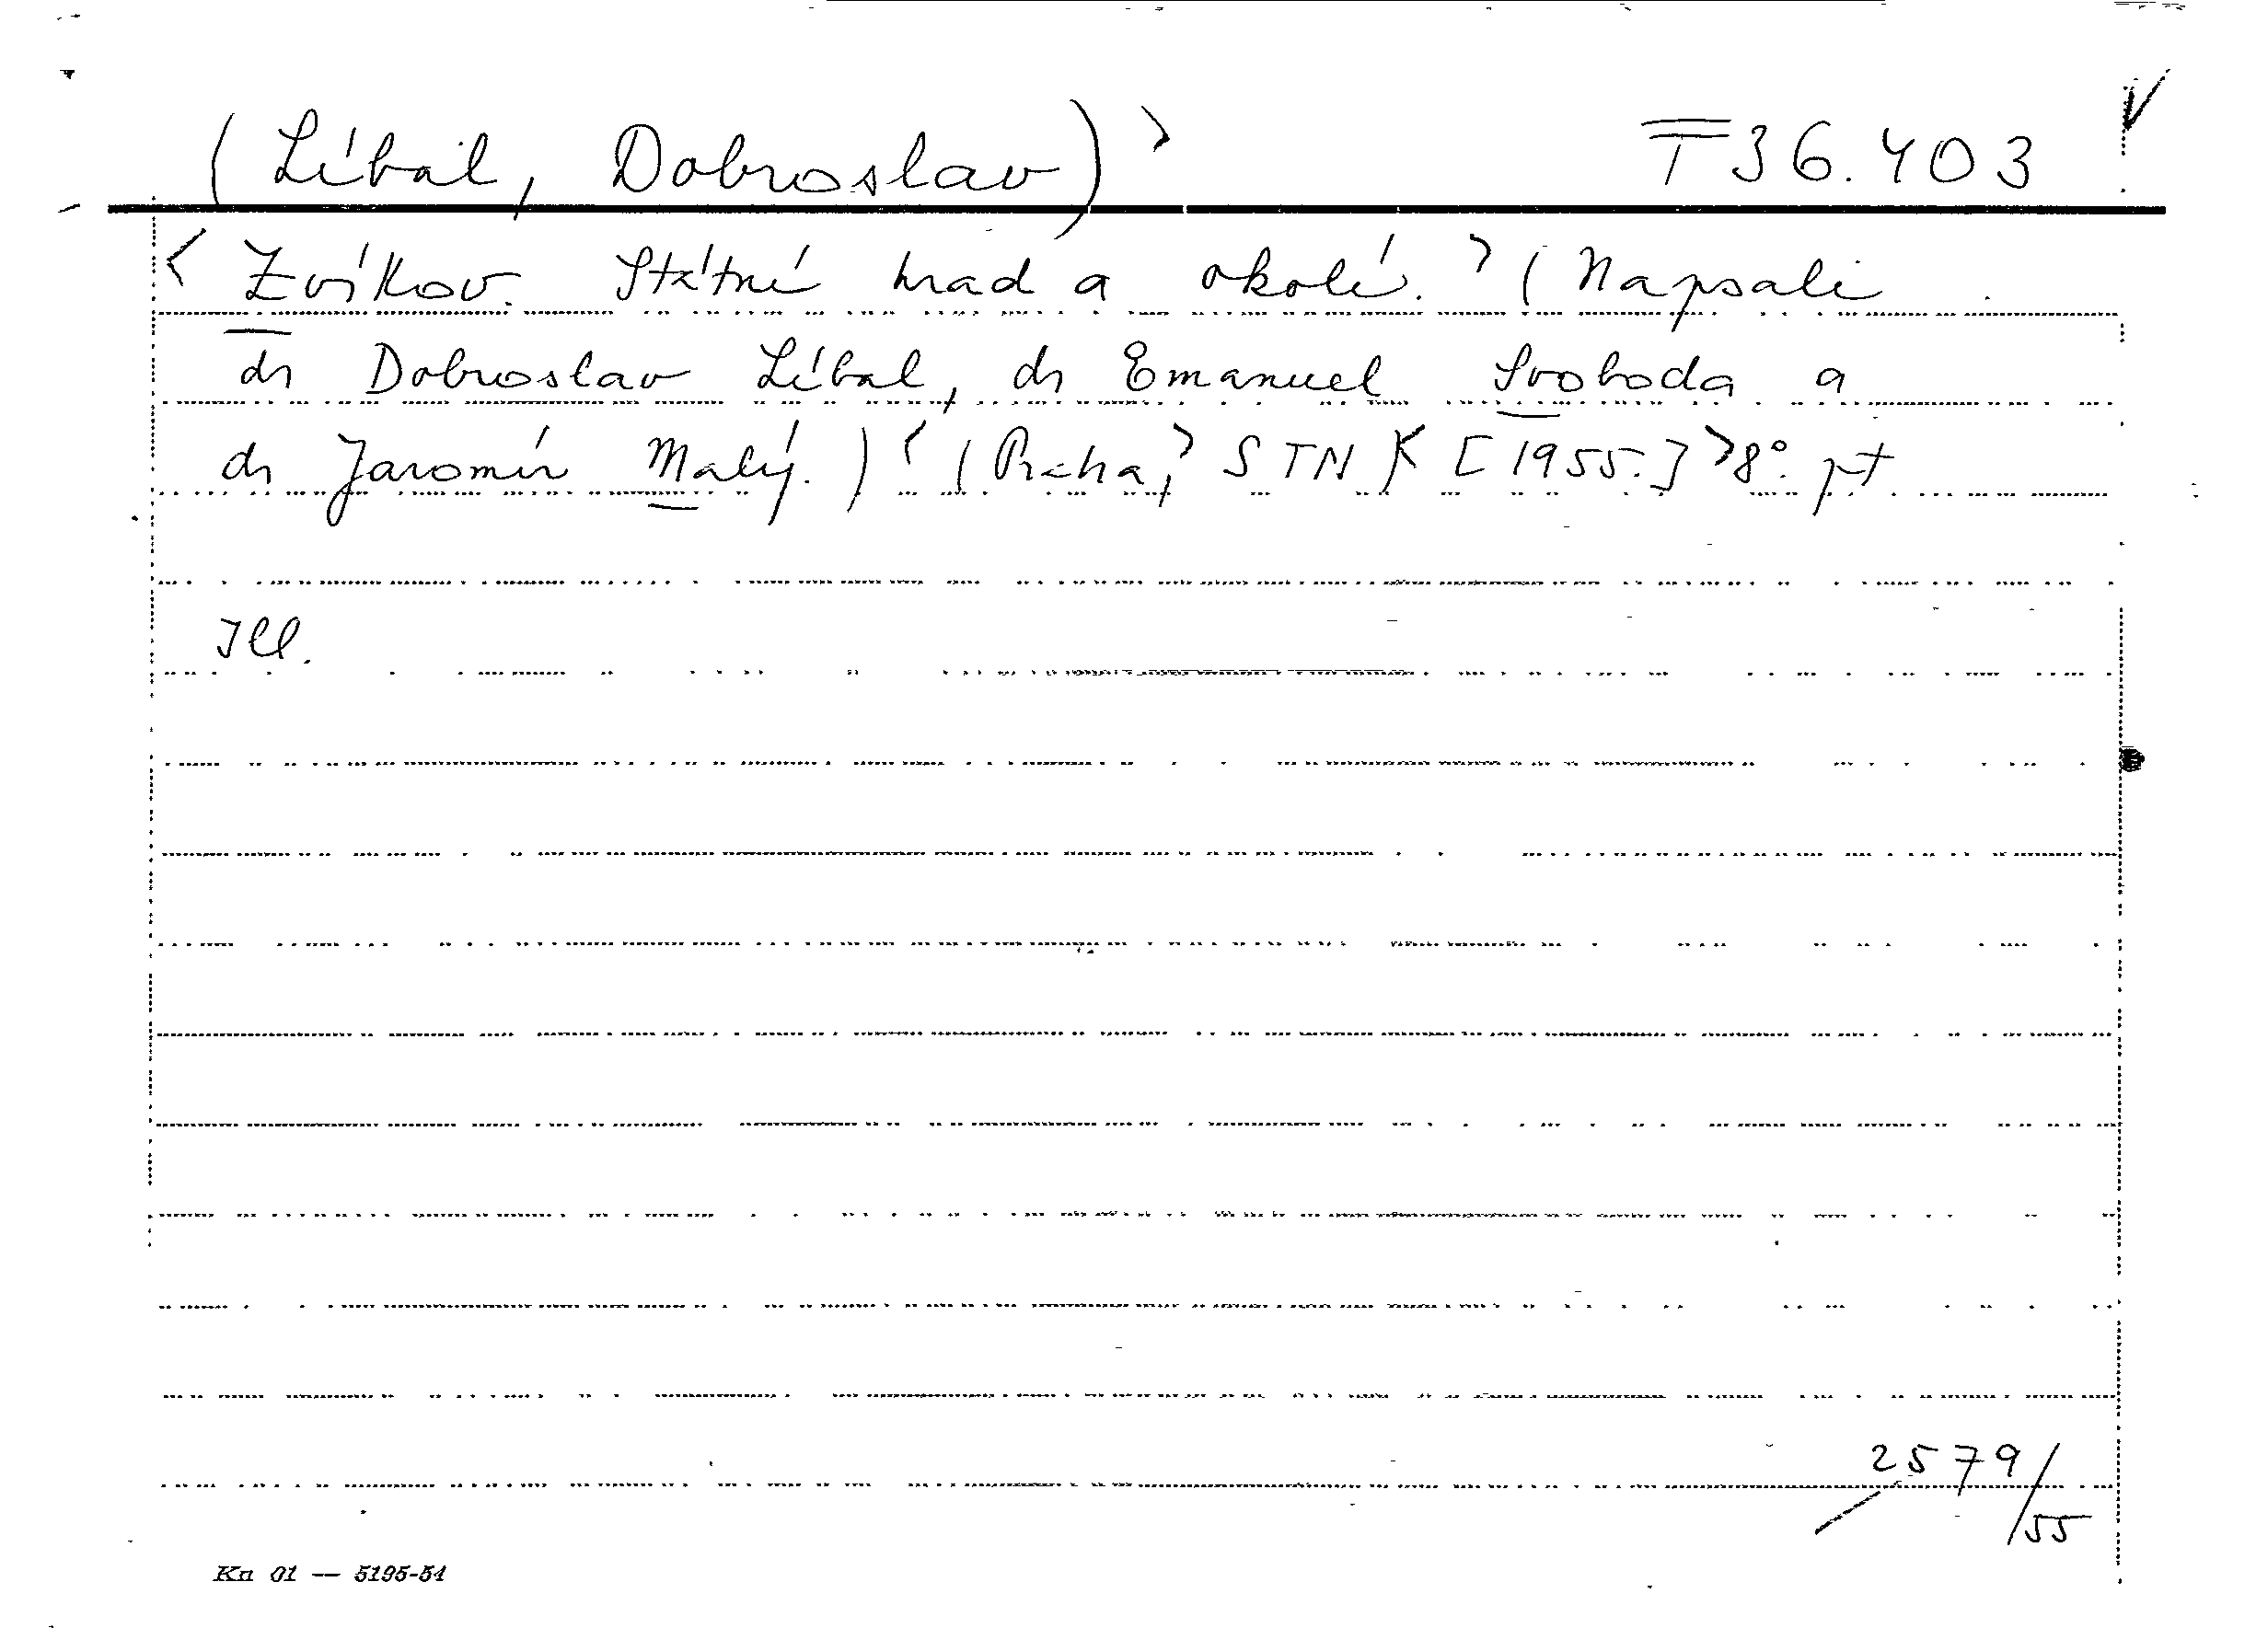 (Líbal, Dobroslav)> T 36.403
<Zvíkov. Státní hrad a okolí.> (Napsali
dr Dobroslav Líbal, dr Emanuel Svoboda a
dr Jaromír Malý.)< (Praha,> STN)< [1955.]> 8°. pt
Ill.
2579/55
Kn 01 — 5195-54